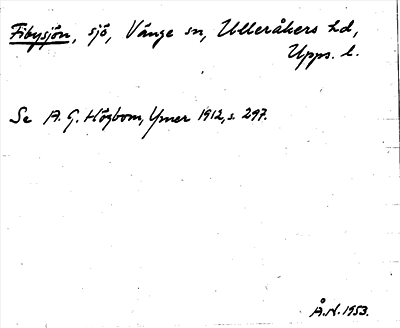 Fibysjön, sjö, Vänge sn, Ulleråkers hd,
Upps. l.
Se A. G. Högbom, Ymer 1912, s. 297.
Å.N. 1953.